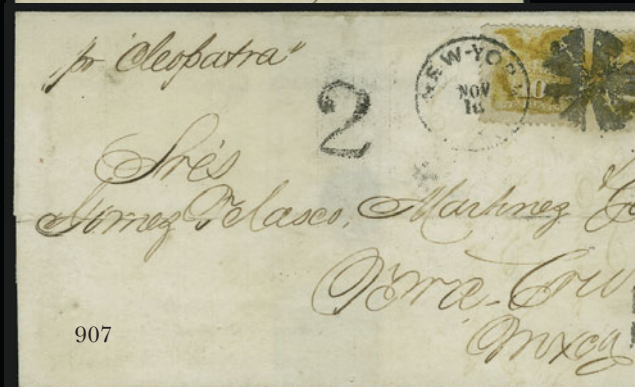 pr "Cleopatra"
NEW-YORK
NOV
16
10
2
Sres
Gomez Velasco, Martinez &
Vera-Cru
Mexco
907